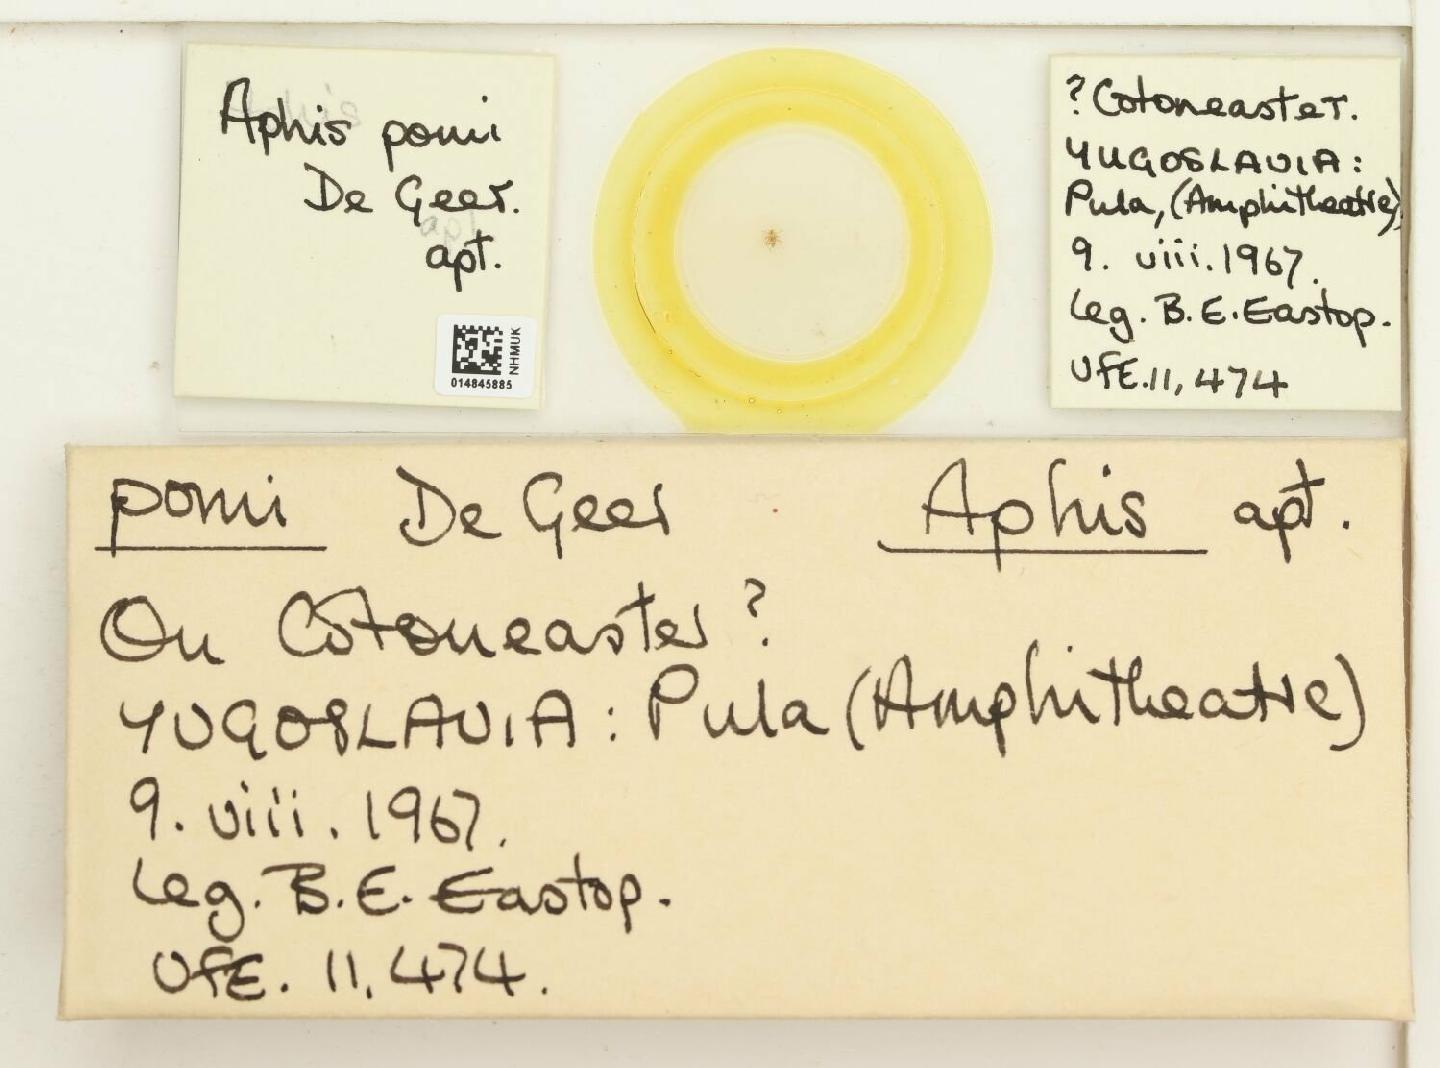 Aphis pomi
De Geer.
apt.
NHMUK
014845885
? Cotoneaster.
YUGOSLAVIA:
Pula, (Amphitheatre)
9. viii. 1967.
leg. B. E. Eastop.
VFE. 11,474
pomi De Geer Aphis apt.
On Cotoneaster ?
YUGOSLAVIA: Pula (Amphitheatre)
9. viii. 1967.
leg. B. E. Eastop.
VFE. 11,474.